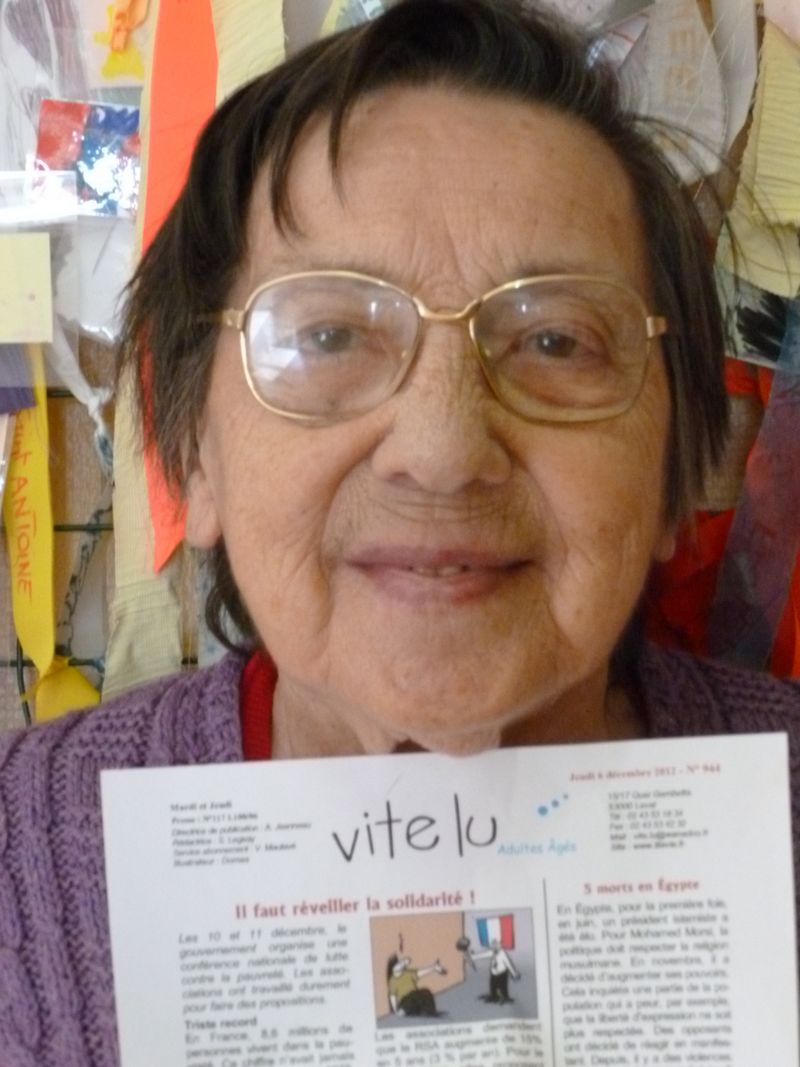 SAINT ANTOINE
Mardi et Jeudi
Directrice de publication : A. Jeanneau
Service abonnement : V. Maubant
Illustrateur : Domas
vite lu
Adultes Âgés
Jeudi 6 décembre 2012 - N° 944
15/17 Quai Gambetta
53000 Laval
Tél : 02 43 53 18 34
Fax : 02 43 53 42 30
Il faut réveiller la solidarité !
Les 10 et 11 décembre, le
gouvernement organise une
conférence nationale de lutte
contre la pauvreté. Les asso-
ciations ont travaillé durement
pour faire des propositions.
Triste record
En France, 8,6 millions de
personnes vivent dans la pau-
vreté. Ce chiffre n'avait jamais
Les associations demandent
que le RSA augmente de 15%
en 5 ans (3 % par an). Pour le
5 morts en Égypte
En Égypte, pour la première fois,
en juin, un président islamiste a
été élu. Pour Mohamed Morsi, la
politique doit respecter la religion
musulmane. En novembre, il a
décidé d'augmenter ses pouvoirs.
Cela inquiète une partie de la po-
pulation qui a peur, par exemple,
que la liberté d'expression ne soit
plus respectée. Des opposants
ont décidé de réagir en manifes-
tant. Depuis, il y a des violences